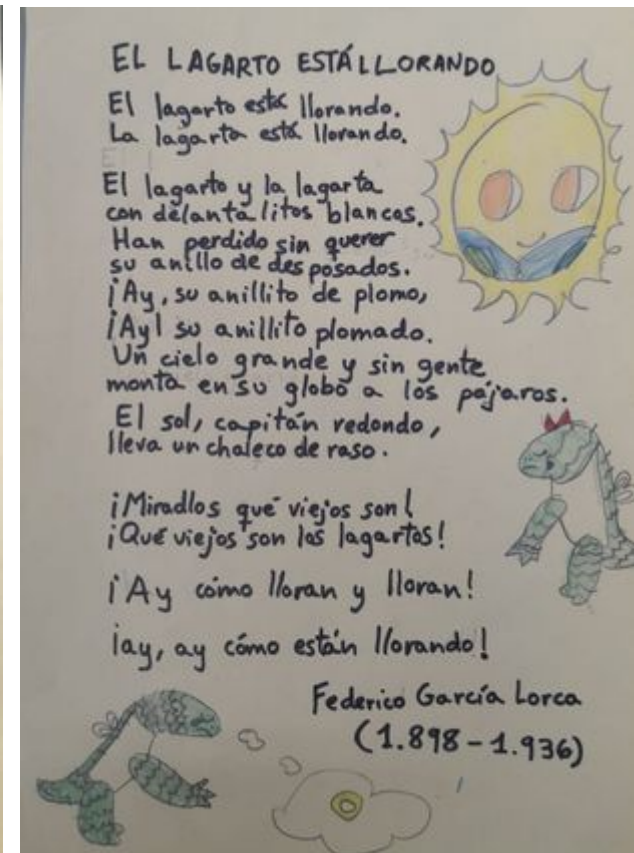 EL LAGARTO ESTÁ LLORANDO
El lagarto está llorando.
La lagarta está llorando.
El lagarto y la lagarta
con delantalitos blancos.
Han perdido sin querer
su anillo de desposados.
¡Ay, su anillito de plomo,
¡Ay! su anillito plomado.
Un cielo grande y sin gente
monta en su globo a los pájaros.
El sol, capitán redondo,
lleva un chaleco de raso.
¡Miradlos qué viejos son!
¡Qué viejos son los lagartos!
¡Ay cómo lloran y lloran!
¡ay, ay cómo están llorando!
Federico García Lorca
(1.898-1.936)